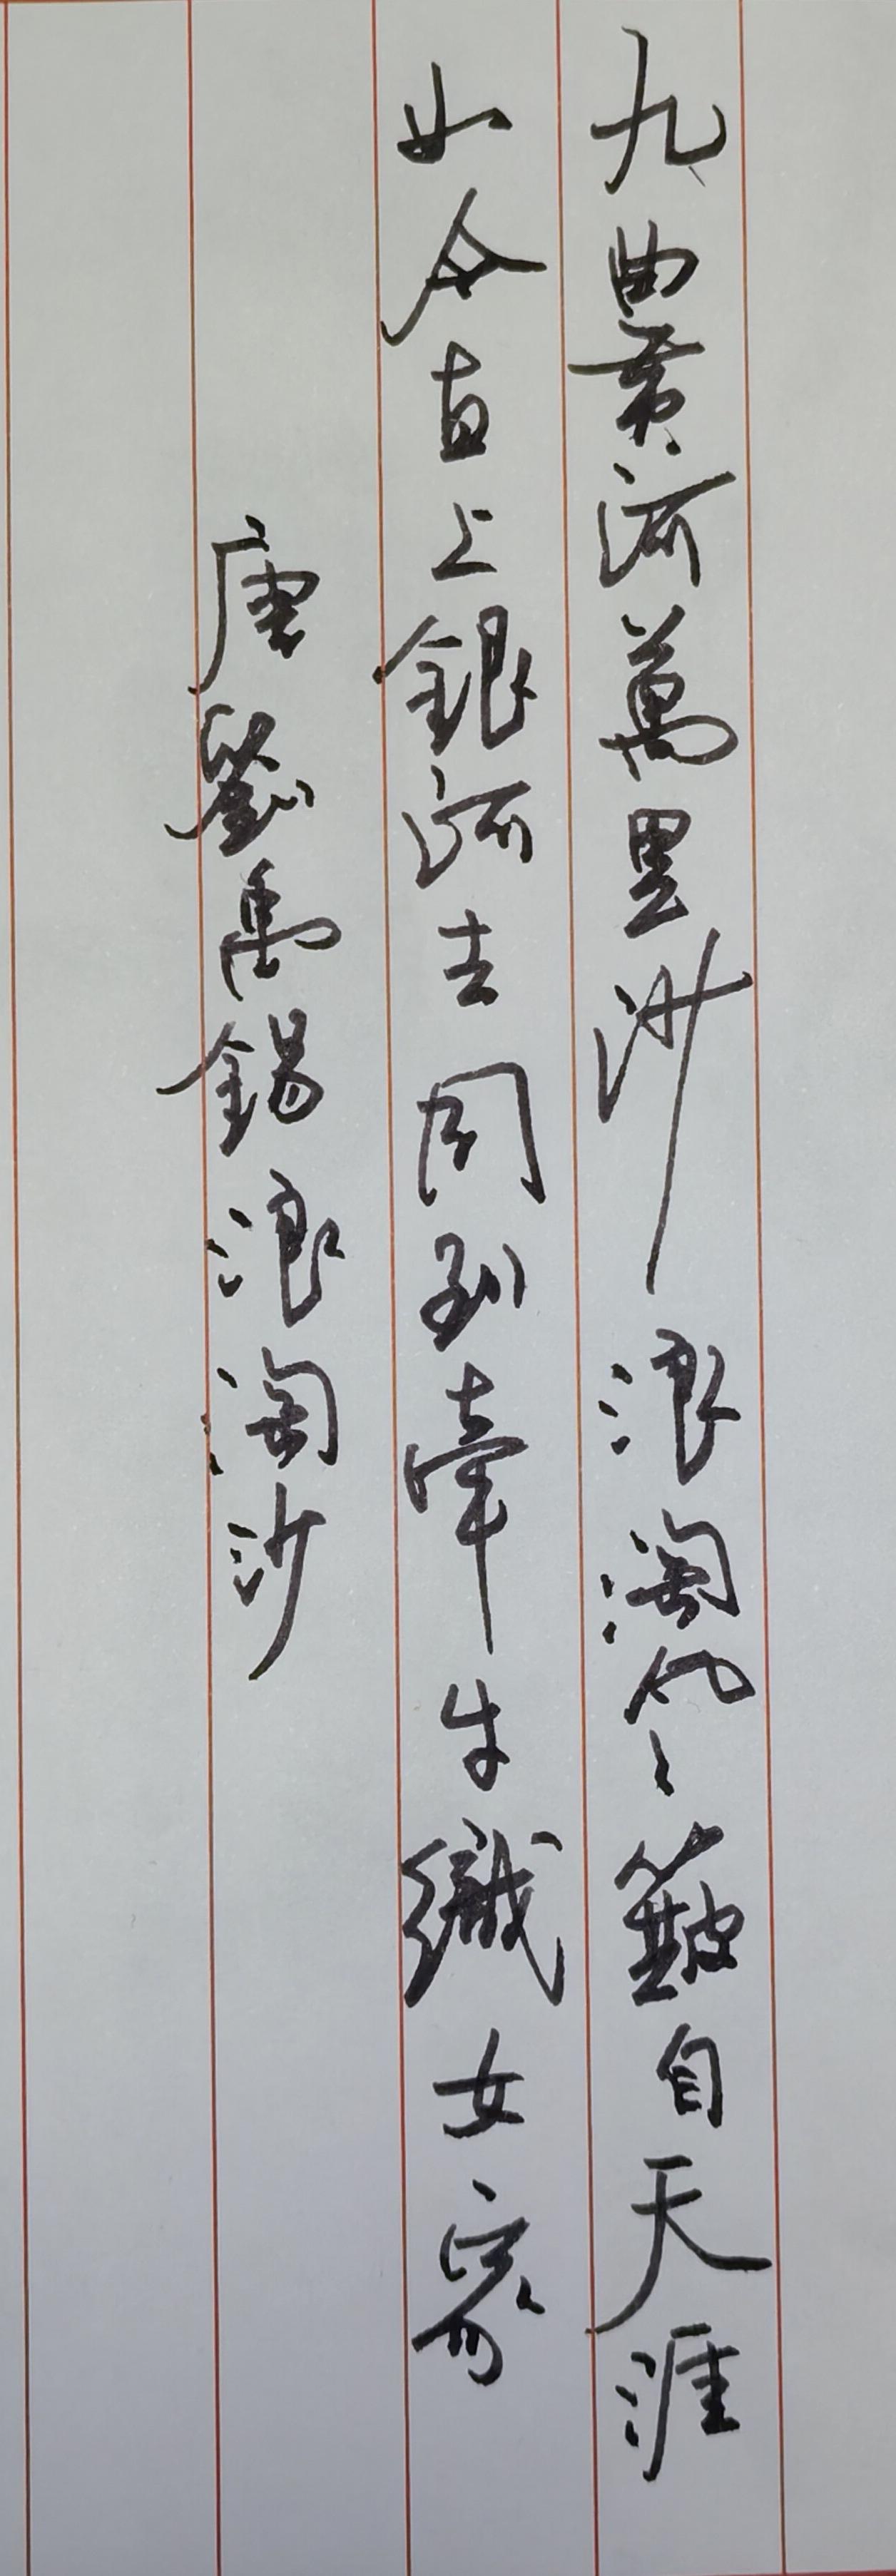 九曲黄河萬里沙浪淘風簸自天涯
如今直上銀河去同到牽牛織女家
唐劉禹錫浪淘沙